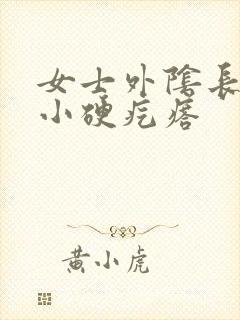 女士外陰長
小硬疙瘩
黄小虎